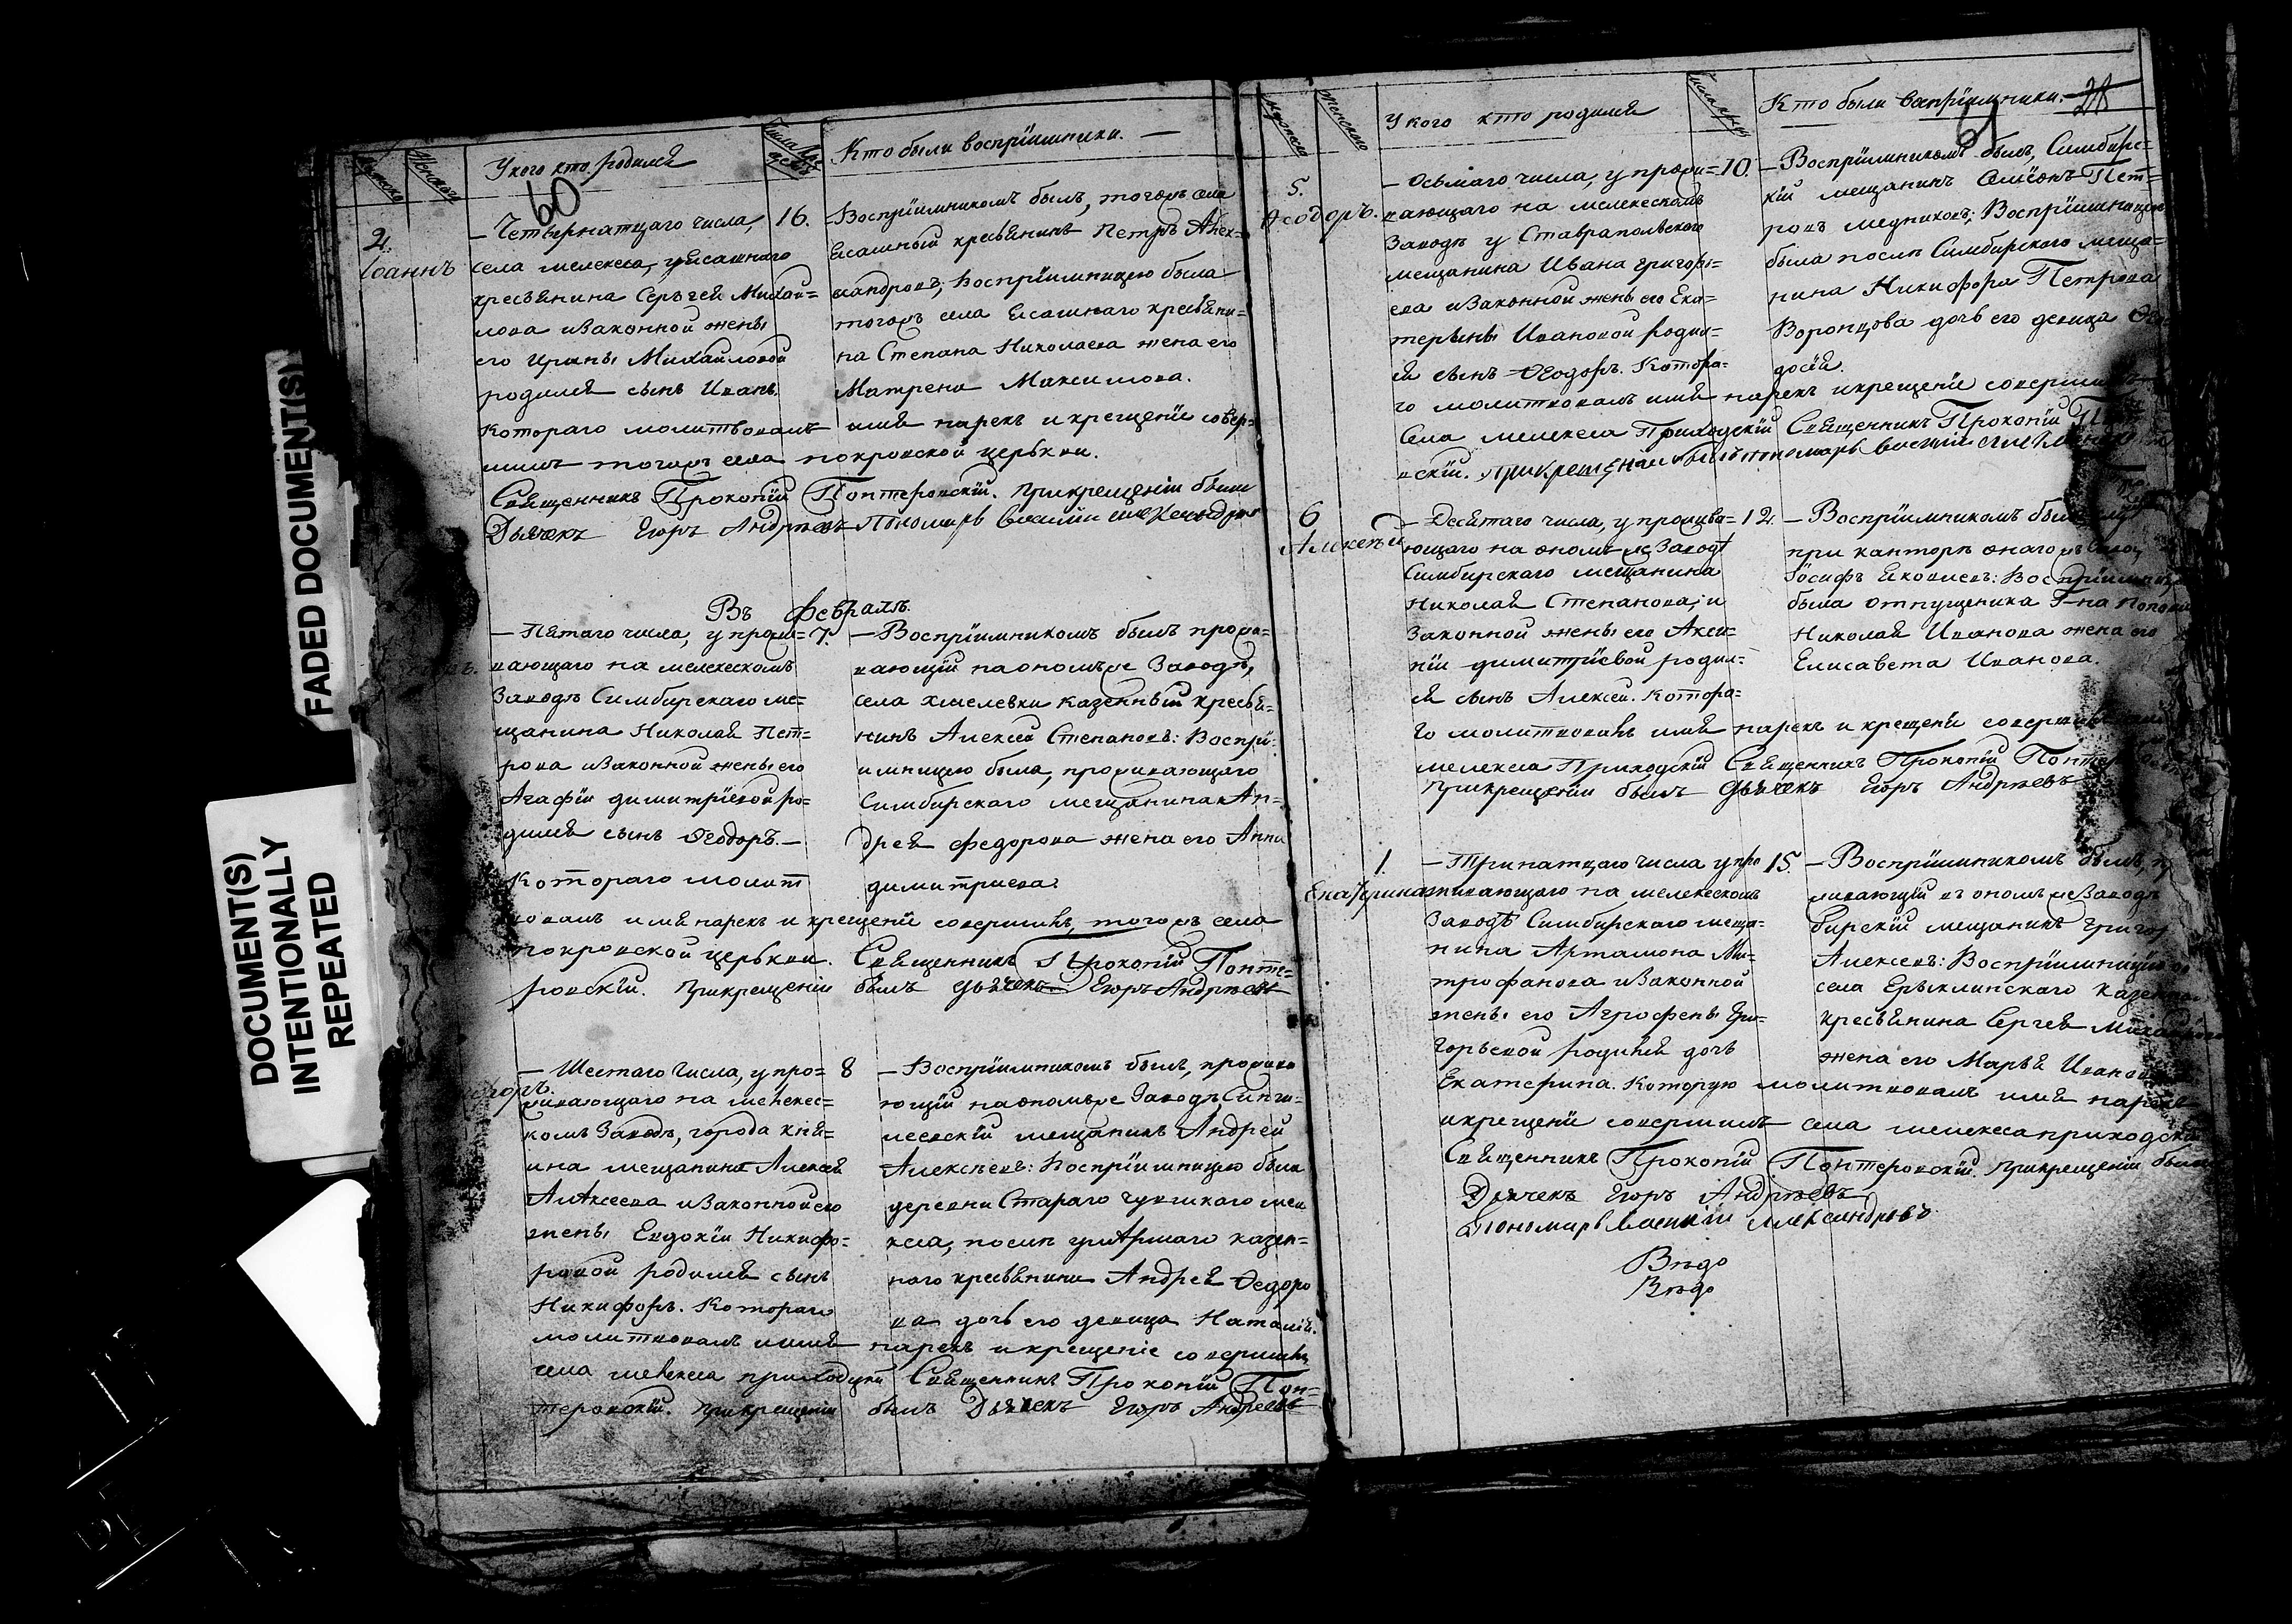 FADED DOCUMENT(S)
DOCUMENT(S)
INTENTIONALLY
REPEATED
Мужеска
Женска
У кого кто родился
60
Кто были воспрїимники. —
2.
Іоаннъ
— Четвернатцаго числа,
села мелекеса, у ясашнаго
кресьянина Серьгея Михаи=
лова и законной жены
его Ирины Михаиловой
родился сынъ Иванъ,
16.
Воспрїимникомъ былъ, тогожъ села
ясашный кресьянинъ Петръ Алек=
сандровъ; Воспрїимницею была
тогожъ села ясашнаго кресьяни=
на Степана Николаева жена его
Матрена Максимова.
котораго молитвовалъ имя нарекъ и крещенїе совер=
шилъ тогожъ села покровской церькви.
Священникъ Прокопїй Понтеровскїй. при крещенїи были
Дьячекъ Егоръ Андрѣевъ Пономарь Василїй Александровъ
Въ февралѣ.
— Пятаго числа, у прожи=
вающаго на мелекескомъ
Заводѣ Симбирскаго ме=
щанина Николая Пет=
рова и законной жены его
Агафїи димитрїевой ро=
дился сынъ Ѳеодоръ. —
Котораго молит
7.
— Воспрїимникомъ былъ прожи=
вающїй на ономъ же Заводѣ,
села хмелевки казенный кресья=
нинъ Алексей Степановъ: Воспрї=
имницею была, проживающаго
Симбирскаго мещанина Ан=
дрея федорова жена его Анна
димитриева.
вовалъ имя нарекъ и крещенїе совершилъ, тогожъ села
покровской церькви. Священникъ Прокопїй Понте=
ровскїй. При крещенїи былъ дьячекъ Егоръ Андрѣевъ
— Шестаго числа, у про=
живающаго на мелекес=
комъ Заводѣ, города
мещанина Алексея
Алексеева и законной его
жены Евдокїи Никифо=
ровой родился сынъ
Никифоръ. Котораго
8
— Воспрїимникомъ былъ, прожива
ющїй на ономъ же Заводѣ Синги=
леевскїй мещанинъ Андрей
Алексѣевъ: Воспрїимницею была
деревни Стараго
кеса, послѣ умершаго казен=
наго кресьянина Андрея Ѳедоро
ва дочь его девица Наталїя.
молитвовалъ имя нарекъ и крещенїе совершилъ
села мелекеса приходскїй Священникъ Прокопїй Пон=
теровскїй. При крещенїи былъ Дьячекъ Егоръ Андреевъ
Мужеска
Женска
У кого кто родился
Кто были воспрїимники.
28
61
5.
Ѳеодоръ.
— Осьмаго числа, у прожи=
вающаго на мелекескомъ
Заводѣ у Ставрапольскаго
мещанина Ивана григорь=
ева и законной жены его Ека=
терины Ивановой родил=
ся сынъ Ѳеодоръ. Котора=
10.
— Воспрїимникомъ былъ, Симбирс=
кїй мещанинъ Семїонъ Пет=
ровъ медниковъ; Воспрїимницею
была послѣ Симбирскаго меща=
нина Никифора Петрова
Воронцова дочь его девица
досїя.
го молитвовалъ имя нарекъ и крещенїе совершилъ
Села мелекеса Приходскїй Священникъ Прокопїй
вскїй. при крещенїи былъ пономарь Василїй
6
Алексѣй
— Десятаго числа, у прожива=
ющаго на ономъ же Заводѣ
Симбирскаго мещанина
Николая Степанова, и
Законной жены его Акси=
нїи димитрїевой родил=
ся сынъ Алексей. Котора=
12.
— Воспрїимникомъ былъ
при канторѣ онаго жъ
Їосифъ Яковлевъ: Воспрїимницею
была отпущеника Г-на
Николая Иванова жена его
Елисавета Иванова.
го молитвовалъ имя нарекъ и крещенїе совершилъ
мелекеса Приходскїй Священникъ Прокопїй
При крещенїи былъ дьячекъ Егоръ Андрѣевъ
1.
Екатерина
— Тринатцаго числа у про
живающаго на мелекескомъ
Заводѣ Симбирскаго меща=
нина Артамона Ми=
трофанова и законной
жены его Агрофены Гри=
горьевой родился дочь
15.
— Воспрїимникомъ былъ, п
живающїй въ ономъ же Заводѣ
бирскїй мещанинъ Григор
Алексеевъ: Воспрїимницею
села Ерыклинскаго казеннаго
кресьянина Сергея Михайлова
жена его Марья Иванова
Екатерина. Которую молитвовалъ имя нарекъ
и крещенїе совершилъ села мелекеса приходскїй
Священникъ Прокопїй Понтеровскїй. при крещенїи были
Дьячекъ Егоръ Андрѣевъ
Пономарь Василїй Александровъ